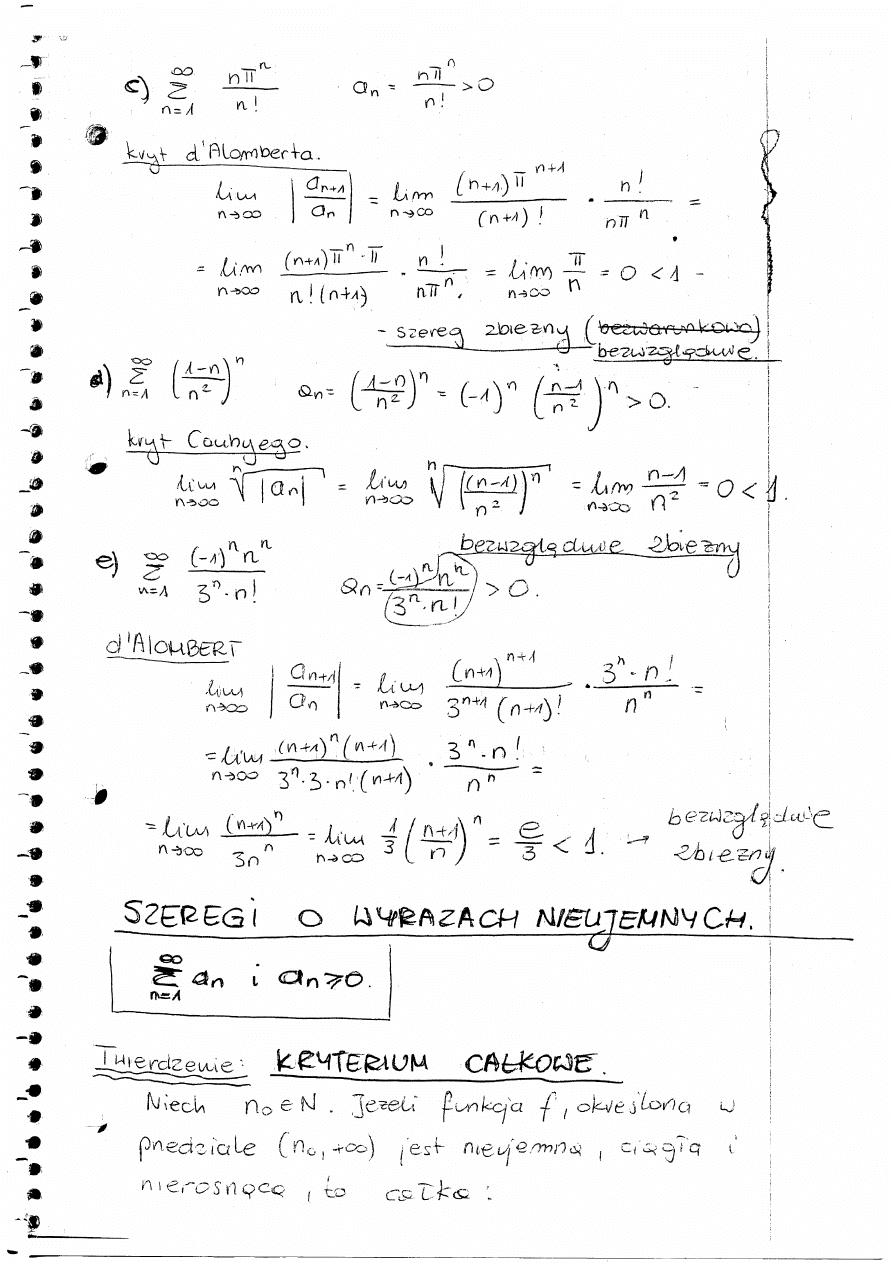 c) ∞∑n=1 nπ^n / n!   a_n = nπ^n / n! > 0
kryt d'Alomberta.
lim n→∞ |a_{n+1} / a_n| = lim n→∞ (n+1)π^{n+1} / (n+1)! · n! / nπ^n =
= lim n→∞ (n+1)π^n·π / n!(n+1) · n! / nπ^n. = lim n→∞ π / n = 0 < 1 -
- szereg zbiezny (bezwarunkowo)
bezwzględnie.
d) ∞∑n=1 ((1-n) / n²)^n   a_n = ((1-n) / n²)^n = (-1)^n ((n-1) / n²)^n > 0.
kryt Cauhyego.
lim n→∞ ⁿ√|a_n| = lim n→∞ ⁿ√|((n-1) / n²)^n| = lim n→∞ (n-1) / n² = 0 < 1.
bezwzględnie zbiezny
e) ∞∑n=1 (-1)^n n^n / 3^n·n!   a_n = (-1)^n n^n / 3^n·n! > 0.
d'AlOMBERT
lim n→∞ |a_{n+1} / a_n| = lim n→∞ (n+1)^{n+1} / 3^{n+1} (n+1)! · 3^n·n! / n^n =
= lim n→∞ (n+1)^n (n+1) / 3^n·3·n!·(n+1) · 3^n·n! / n^n =
= lim n→∞ (n+1)^n / 3n^n = lim n→∞ 1/3 ((n+1) / n)^n = e/3 < 1. → bezwzględnie
zbiezny.
SZEREGI O WYRAZACH NIEUJEMNYCH.
∞∑n=1 a_n i a_n ⩾ 0.
Twierdzenie: KRYTERIUM CAŁKOWE.
Niech n₀ ∈ N. Jezeli funkcja f, określona w
pnedziale (n₀, +∞) jest nieujemna, ciągła i
nierosnąca, to całka: